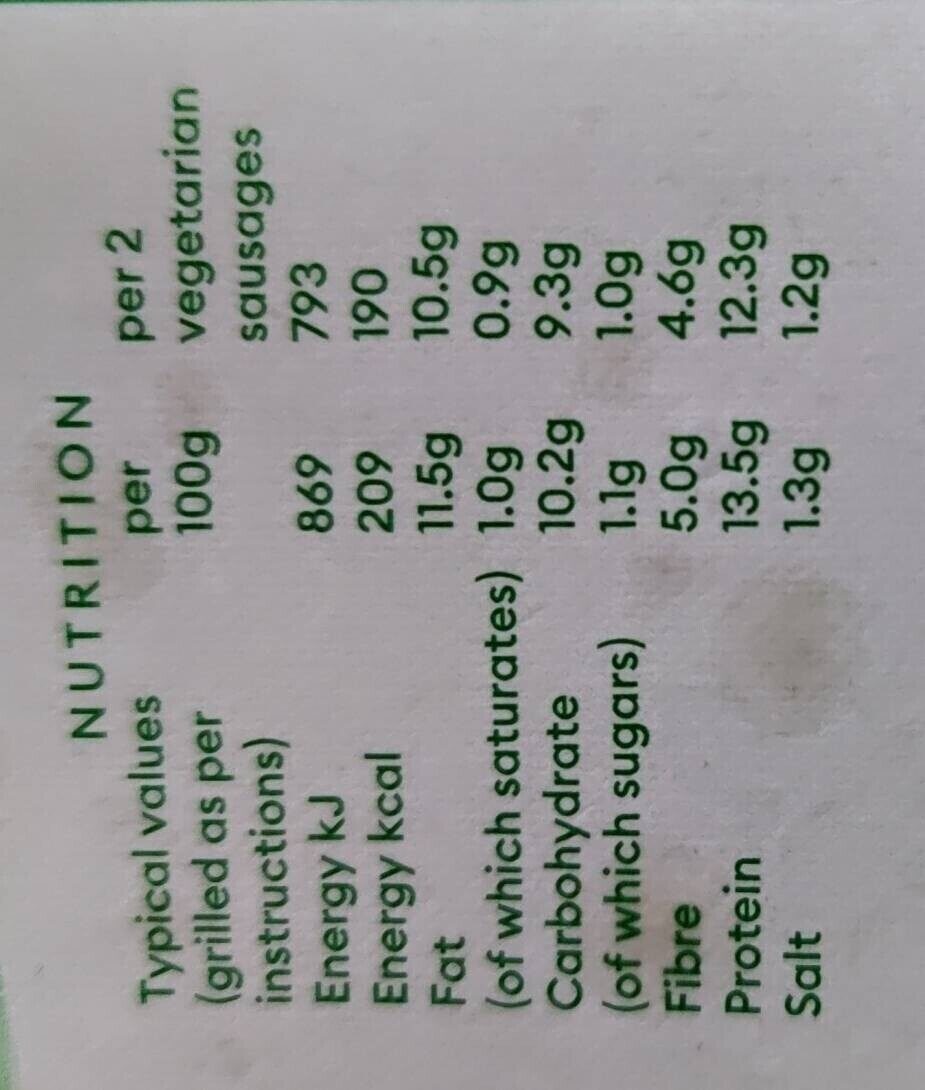 NUTRITION
Typical values per per 2
(grilled as per 100g vegetarian
instructions) sausages
Energy kJ 869 793
Energy kcal 209 190
Fat 11.5g 10.5g
(of which saturates) 1.0g 0.9g
Carbohydrate 10.2g 9.3g
(of which sugars) 1.1g 1.0g
Fibre 5.0g 4.6g
Protein 13.5g 12.3g
Salt 1.3g 1.2g